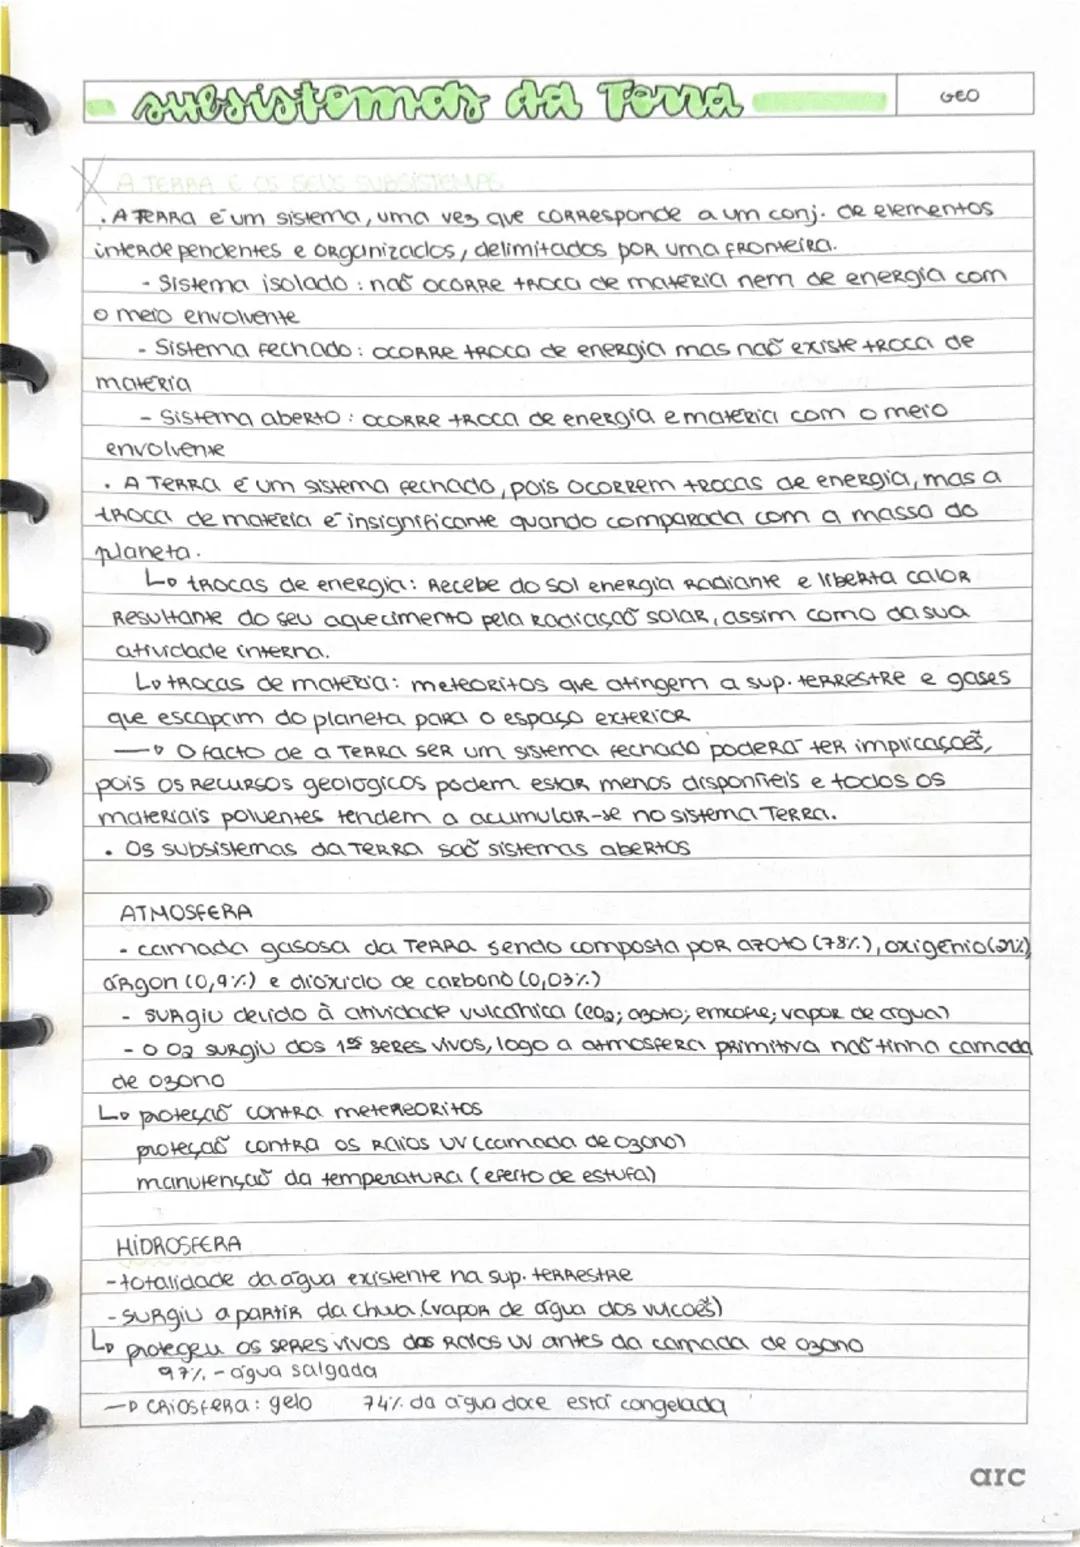 subsistemas da Terra
GEO
A TERRA E OS SEUS SUBSISTEMAS
. A TERRA é um sistema, uma vez que corresponde a um conj. de elementos
interdependentes e organizados, delimitados por uma fronteira.
- Sistema isolado : não ocorre troca de matéria nem de energia com
o meio envolvente
- Sistema fechado : ocorre troca de energia mas não existe troca de
matéria
- Sistema aberto : ocorre troca de energia e matéria com o meio
envolvente
. A Terra é um sistema fechado, pois ocorrem trocas de energia, mas a
troca de matéria é insignificante quando comparada com a massa do
planeta.
↳ trocas de energia: Recebe do sol energia radiante e liberta calor
resultante do seu aquecimento pela radiação solar, assim como da sua
atividade interna.
↳ trocas de matéria: meteoritos que atingem a sup. terrestre e gases
que escapam do planeta para o espaço exterior
→ O facto de a Terra ser um sistema fechado poderá ter implicações,
pois os recursos geologicos podem estar menos disponíveis e todos os
materiais poluentes tendem a acumular-se no sistema Terra.
. Os subsistemas da Terra são sistemas abertos
ATMOSFERA
- camada gasosa da Terra sendo composta por azoto (78%), oxigénio (21%)
árgon (0,9%) e dióxido de carbono (0,03%)
- surgiu devido à atividade vulcânica (CO2; azoto; enxofre; vapor de água)
- O O2 surgiu dos 1ºs seres vivos, logo a atmosfera primitiva não tinha camada
de ozono
↳ proteção contra metereoritos
proteção contra os raios UV (camada de ozono)
manutenção da temperatura (efeito de estufa)
HIDROSFERA
- totalidade da água existente na sup. terrestre
- surgiu a partir da chuva (vapor de água dos vulcões)
↳ protegeu os seres vivos dos raios UV antes da camada de ozono
97% - água salgada
→ CRIOSFERA: gelo 74% da água doce está congelada
arc